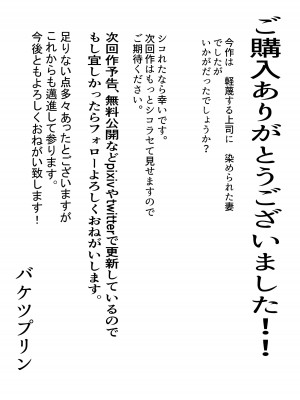 ご購入ありがとうございました!!
今作は　軽蔑する上司に　染められた妻
でしたが
いかがだったでしょうか？
シコれたなら幸いです。
次回作はもっとシコラセて見せますので
ご期待ください。
次回作予告、無料公開などpixivやtwitterで更新しているので
もし宜しかったらフォローよろしくおねがいします。
足りない点多々あったとございますが
これからも邁進して参ります。
今後ともよろしくおねがい致します！
バケツプリン